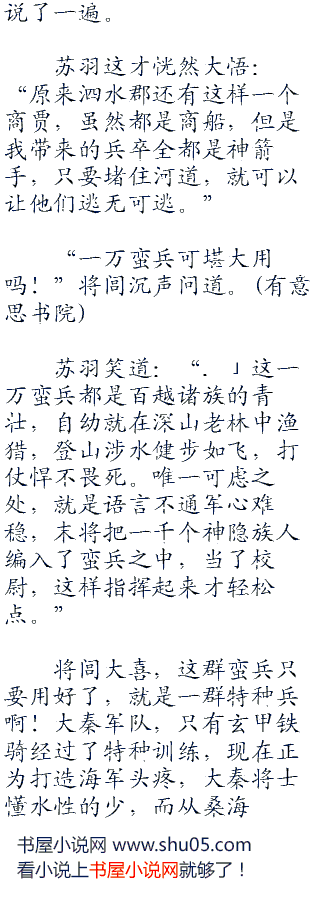 说了一遍。
苏羽这才恍然大悟：
“原来泗水郡还有这样一个
商贾，虽然都是商船，但是
我带来的兵卒全都是神箭
手，只要堵住河道，就可以
让他们逃无可逃。”
“一万蛮兵可堪大用
吗！”将闾沉声问道。(有意
思书院)
苏羽笑道：“．」这一
万蛮兵都是百越诸族的青
壮，自幼就在深山老林中渔
猎，登山涉水健步如飞，打
仗悍不畏死。唯一可虑之
处，就是语言不通军心难
稳，末将把一千个神隐族人
编入了蛮兵之中，当了校
尉，这样指挥起来才轻松
点。”
将闾大喜，这群蛮兵只
要用好了，就是一群特种兵
啊！大秦军队，只有玄甲铁
骑经过了特种训练，现在正
为打造海军头疼，大秦将士
懂水性的少，而从桑海
书屋小说网 www.shu05.com
看小说上书屋小说网就够了！